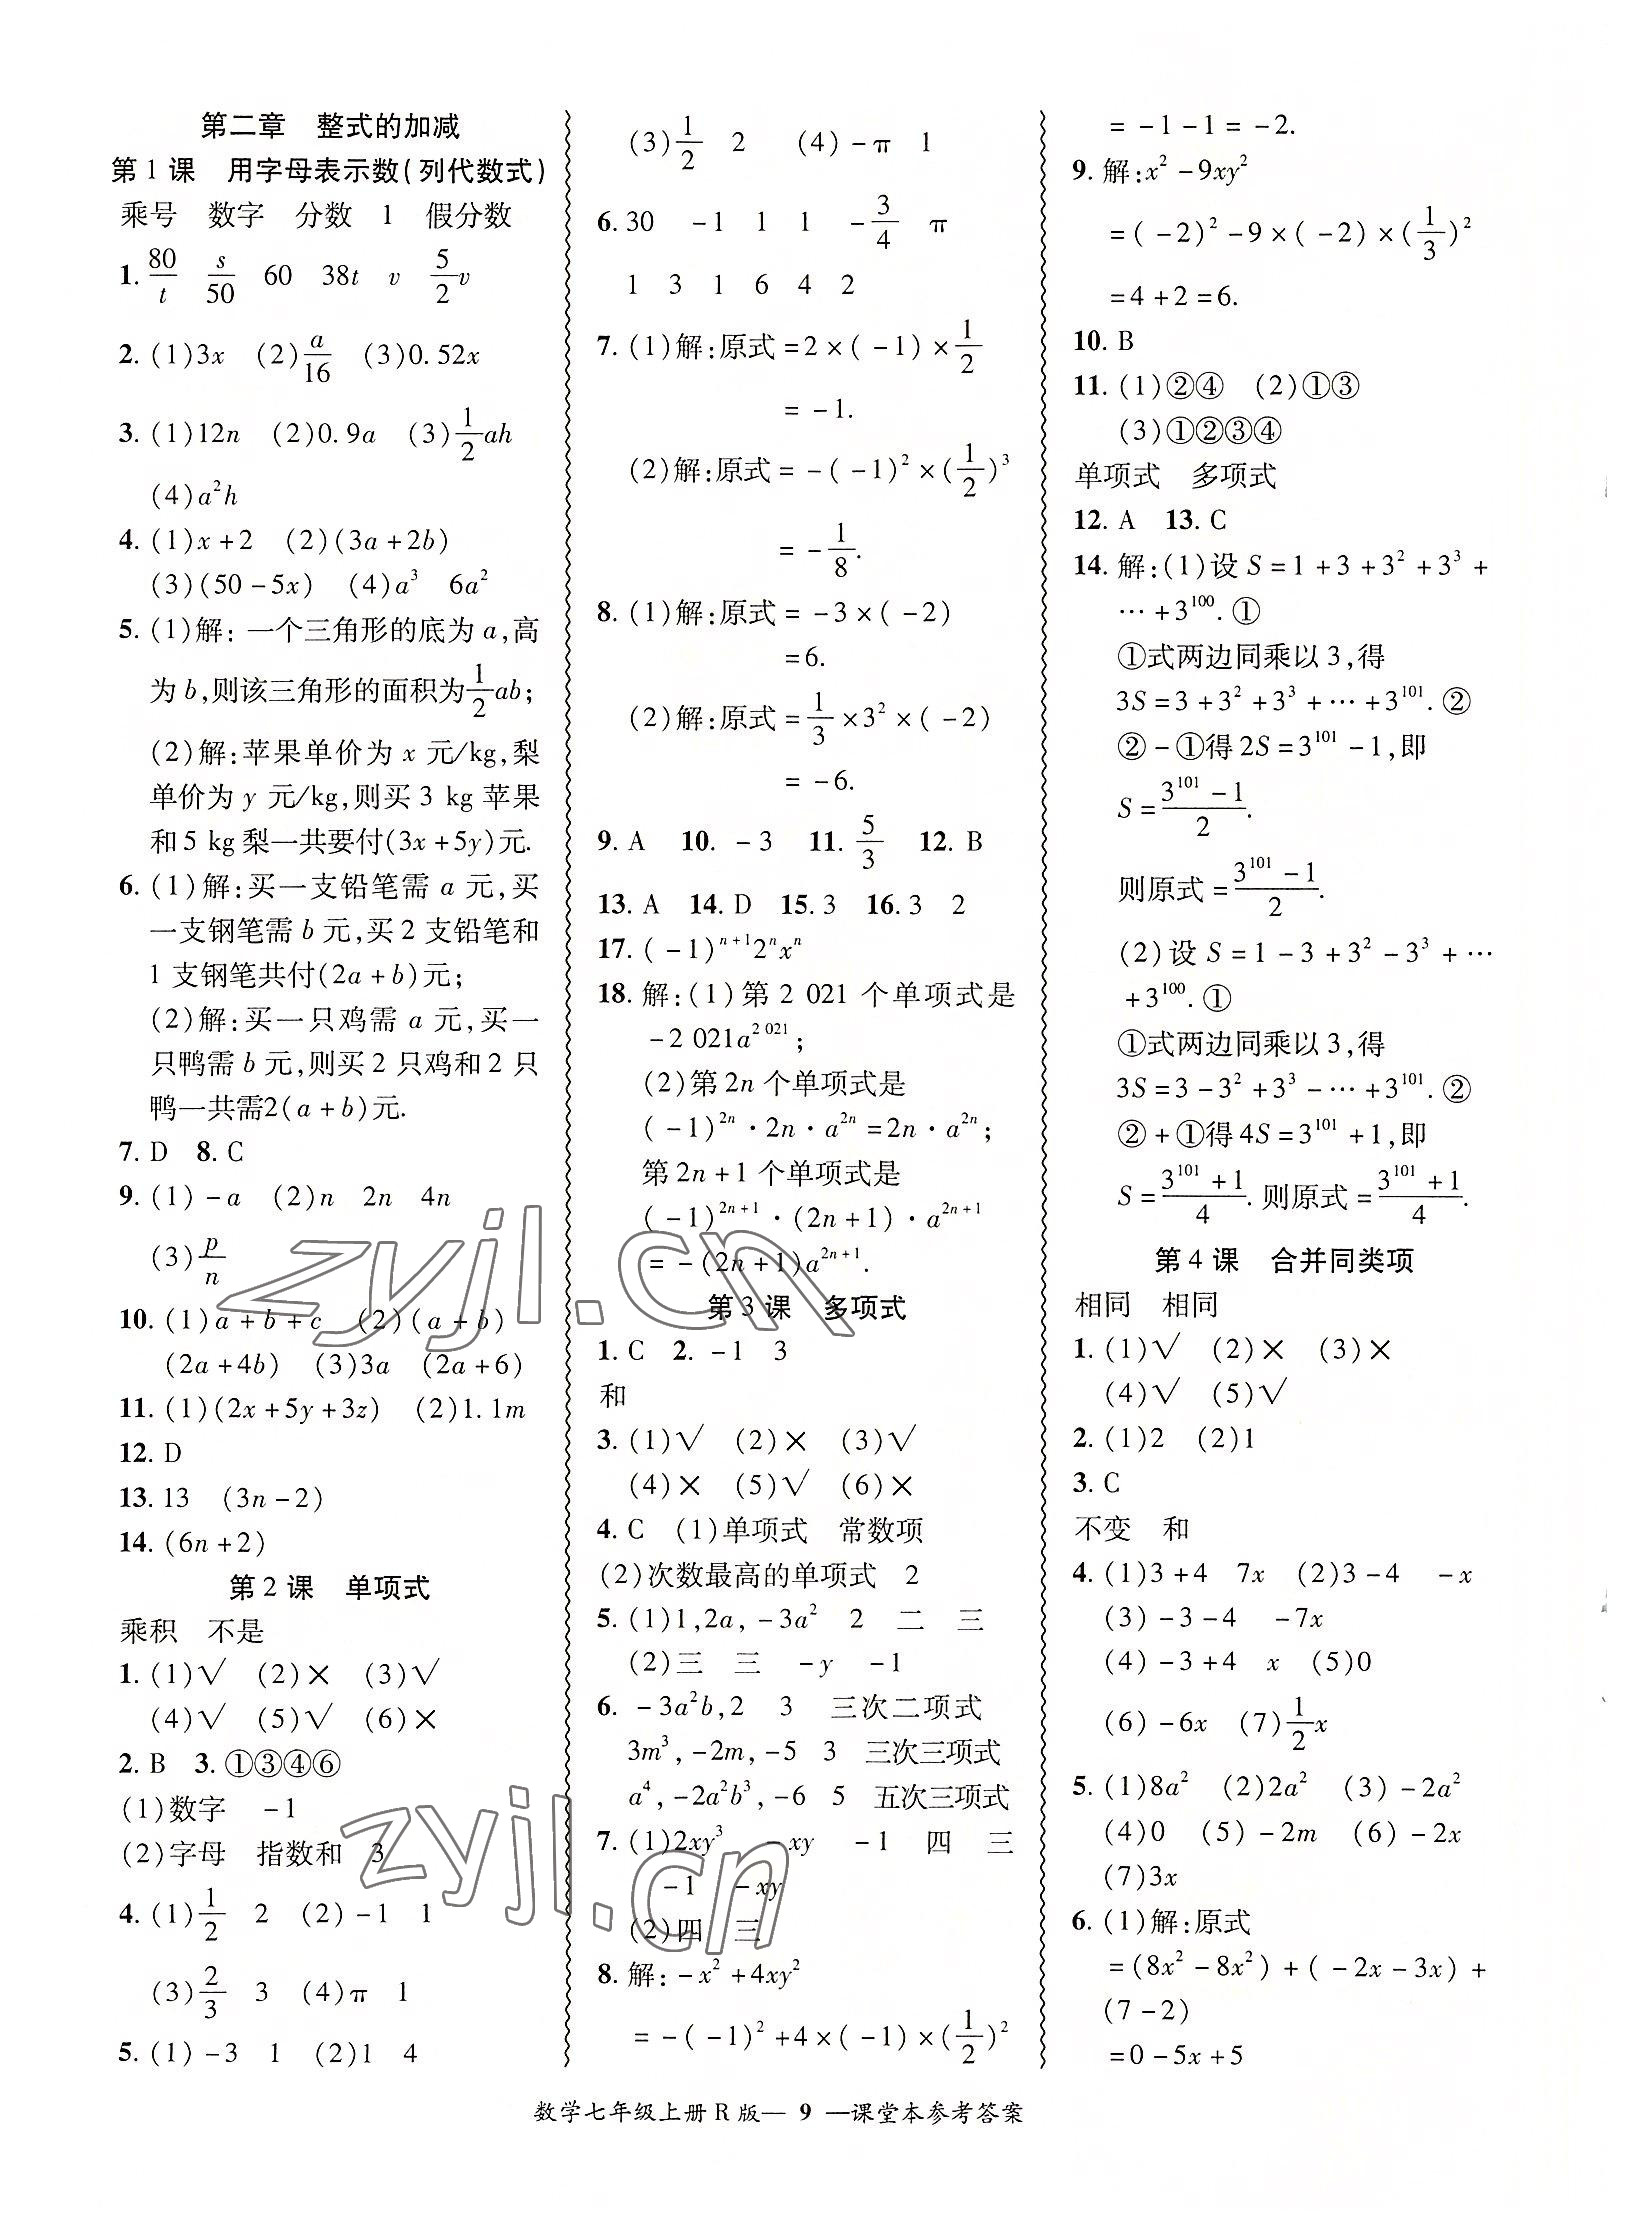 第二章　整式的加减
第1课　用字母表示数(列代数式)
乘号　数字　分数　1　假分数
1. 80/t　s/50　60　38t　v　5/2 v
2. (1)3x　(2)a/16　(3)0.52x
3. (1)12n　(2)0.9a　(3)1/2 ah
(4)a²h
4. (1)x+2　(2)(3a+2b)
(3)(50-5x)　(4)a³　6a²
5. (1)解: 一个三角形的底为a,高
为b,则该三角形的面积为1/2 ab;
(2)解:苹果单价为x元/kg,梨
单价为y元/kg,则买3 kg苹果
和5 kg梨一共要付(3x+5y)元.
6. (1)解:买一支铅笔需a元,买
一支钢笔需b元,买2支铅笔和
1支钢笔共付(2a+b)元;
(2)解:买一只鸡需a元,买一
只鸭需b元,则买2只鸡和2只
鸭一共需2(a+b)元.
7. D　8. C
9. (1)-a　(2)n　2n　4n
(3)p/n
10. (1)a+b+c　(2)(a+b)
(2a+4b)　(3)3a　(2a+6)
11. (1)(2x+5y+3z)　(2)1.1m
12. D
13. 13　(3n-2)
14. (6n+2)
第2课　单项式
乘积　不是
1. (1)√　(2)×　(3)√
(4)√　(5)√　(6)×
2. B　3. ①③④⑥
(1)数字　-1
(2)字母　指数和　3
4. (1)1/2　2　(2)-1　1
(3)2/3　3　(4)π　1
5. (1)-3　1　(2)1　4
(3)1/2　2　(4)-π　1
6. 30　-1　1　1　-3/4　π
1　3　1　6　4　2
7. (1)解:原式=2×(-1)×1/2
=-1.
(2)解:原式=-(-1)²×(1/2)³
=-1/8.
8. (1)解:原式=-3×(-2)
=6.
(2)解:原式=1/3×3²×(-2)
=-6.
9. A　10. -3　11. 5/3　12. B
13. A　14. D　15. 3　16. 3　2
17. (-1)ⁿ⁺¹2ⁿxⁿ
18. 解:(1)第2 021个单项式是
-2 021a^(2 021);
(2)第2n个单项式是
(-1)^(2n)·2n·a^(2n)=2n·a^(2n);
第2n+1个单项式是
(-1)^(2n+1)·(2n+1)·a^(2n+1)
=-(2n+1)a^(2n+1).
第3课　多项式
1. C　2. -1　3
和
3. (1)√　(2)×　(3)√
(4)×　(5)√　(6)×
4. C　(1)单项式　常数项
(2)次数最高的单项式　2
5. (1)1,2a,-3a²　2　二　三
(2)三　三　-y　-1
6. -3a²b,2　3　三次二项式
3m³,-2m,-5　3　三次三项式
a⁴,-2a²b³,-6　5　五次三项式
7. (1)2xy³　-xy　-1　四　三
-1　-xy
(2)四　三
8. 解:-x²+4xy²
=-(-1)²+4×(-1)×(1/2)²
=-1-1=-2.
9. 解:x²-9xy²
=(-2)²-9×(-2)×(1/3)²
=4+2=6.
10. B
11. (1)②④　(2)①③
(3)①②③④
单项式　多项式
12. A　13. C
14. 解:(1)设S=1+3+3²+3³+
…+3¹⁰⁰.①
①式两边同乘以3,得
3S=3+3²+3³+…+3¹⁰¹.②
②-①得2S=3¹⁰¹-1,即
S=(3¹⁰¹-1)/2.
则原式=(3¹⁰¹-1)/2.
(2)设S=1-3+3²-3³+…
+3¹⁰⁰.①
①式两边同乘以3,得
3S=3-3²+3³-…+3¹⁰¹.②
②+①得4S=3¹⁰¹+1,即
S=(3¹⁰¹+1)/4.则原式=(3¹⁰¹+1)/4.
第4课　合并同类项
相同　相同
1. (1)√　(2)×　(3)×
(4)√　(5)√
2. (1)2　(2)1
3. C
不变　和
4. (1)3+4　7x　(2)3-4　-x
(3)-3-4　-7x
(4)-3+4　x　(5)0
(6)-6x　(7)1/2 x
5. (1)8a²　(2)2a²　(3)-2a²
(4)0　(5)-2m　(6)-2x
(7)3x
6. (1)解:原式
=(8x²-8x²)+(-2x-3x)+
(7-2)
=0-5x+5
数学七年级上册R版— 9 —课堂本参考答案
zyjl.cn
zyjl.cn